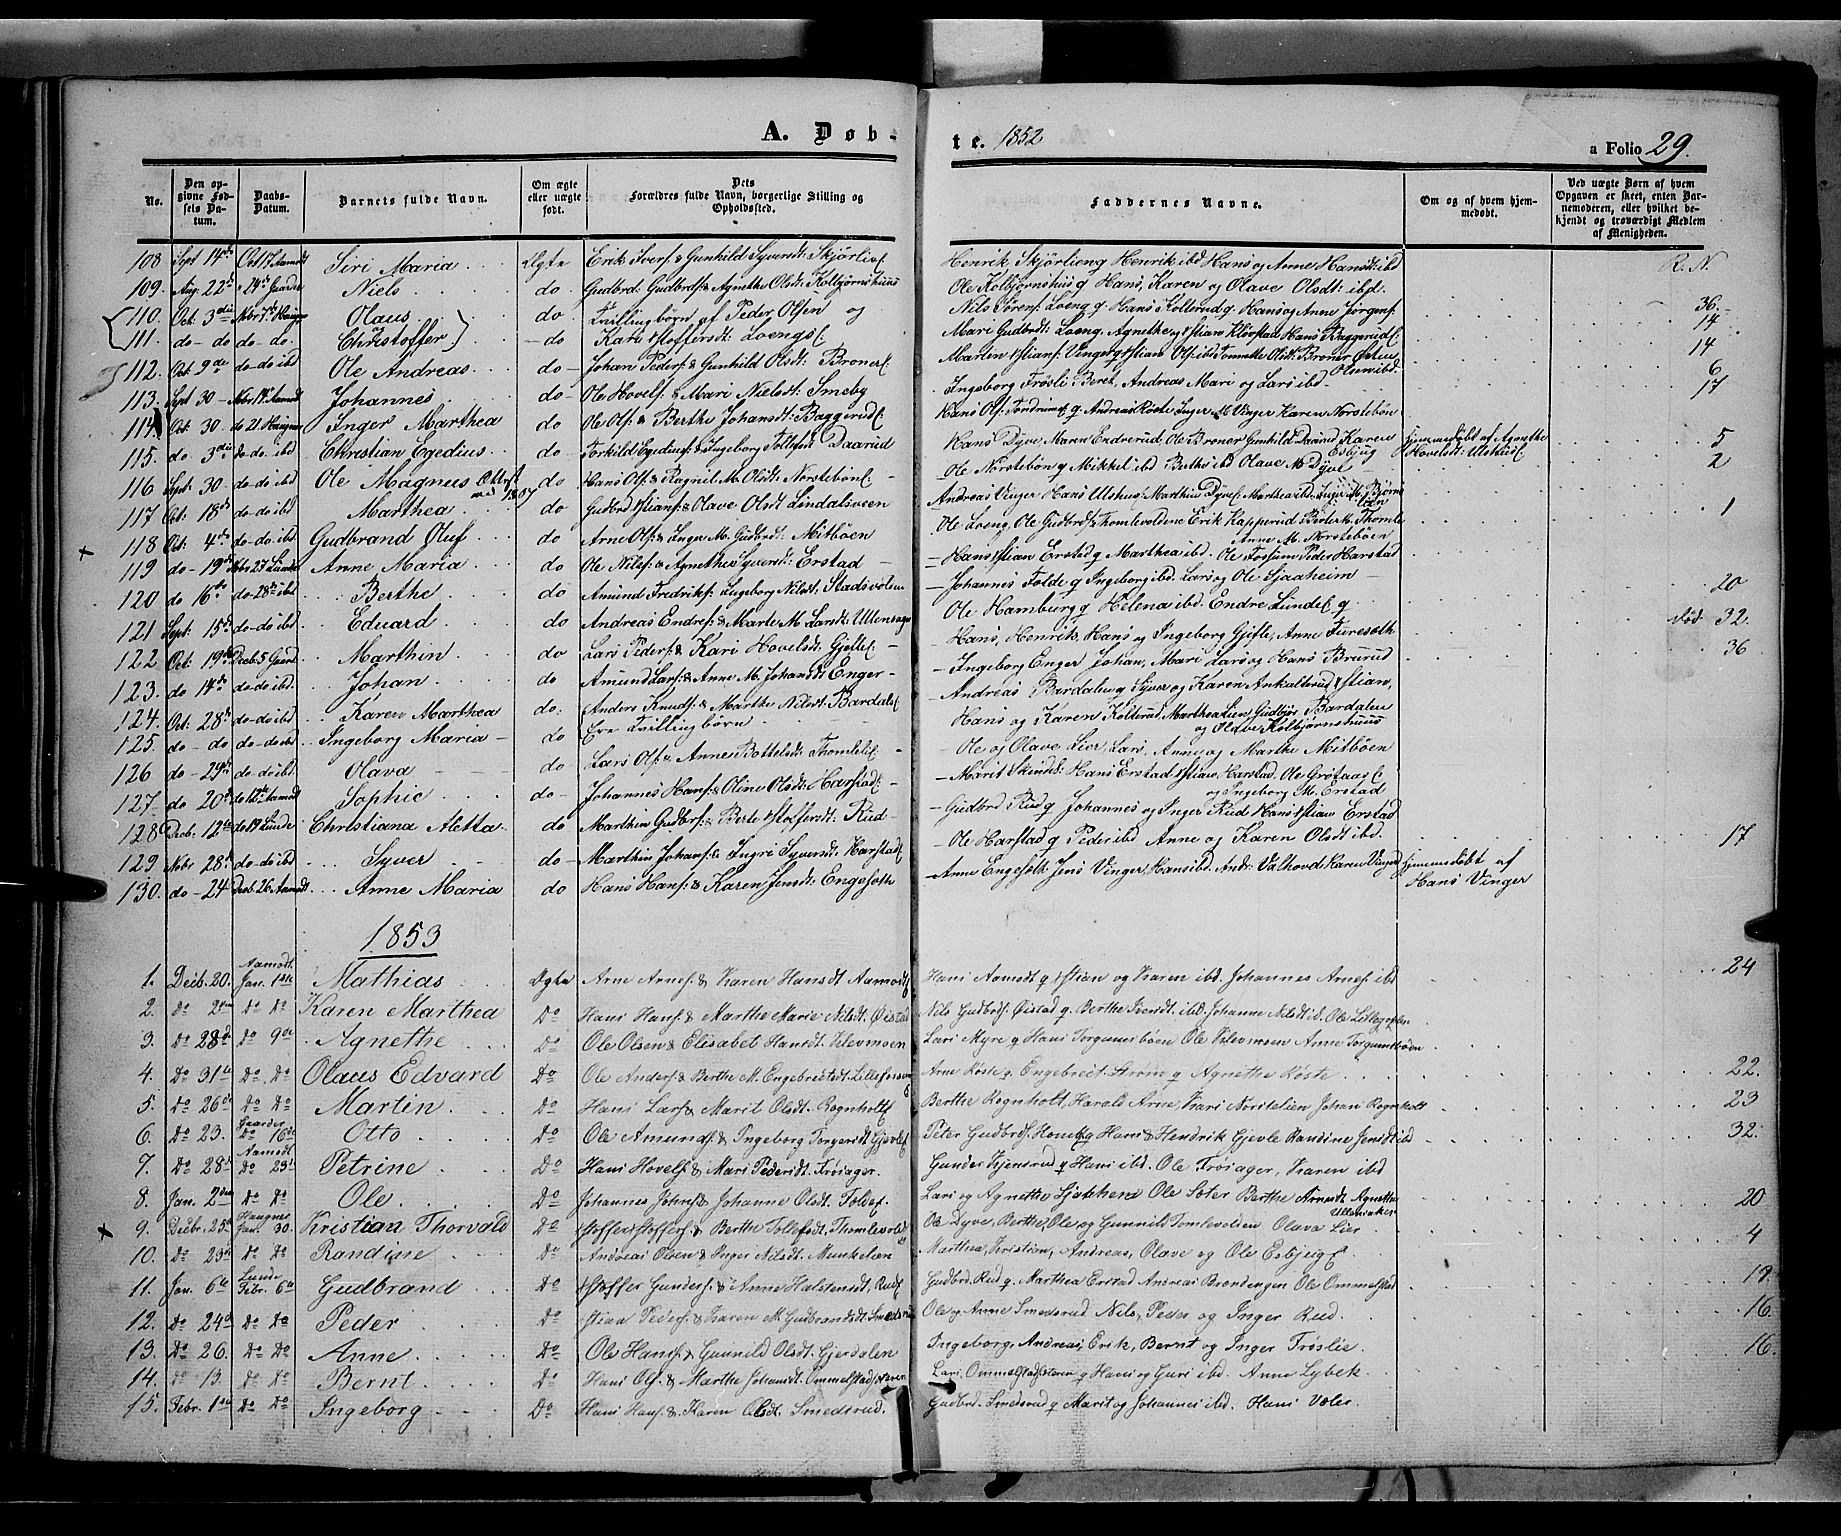 A. Døb-
te. 1852
a Folio 29.
No. Den opgivne Fødsels Datum. Daabs-Datum. Barnets fulde Navn. Om ægte eller uægte født. Dets Forældres fulde Navn, borgerlige Stilling og Opholdssted. Faddernes Navne. Om og af hvem hjemmedøbt. Ved uægte Børn af hvem Opgaven er skeet, enten Barnemoderen, eller hvilket bekjendt og troværdigt Medlem af Menigheden.
108 Sept 14de Oct 17 Aamodt Siri Maria Ægte Erik Iversf: & Gunhild Syversdt: Skjørlief Henrik Skjørlieng Henrik ibd Hans og Anne Hansdt: ibd R. N.
109. Aug. 22d do 24de Gaarder Niels do. Gudbrd: Gudbrdsf: & Agnethe Olsdt: Kolbjørnshuus Ole Kolbjørnshuus q Hans, Karen og Olave Olsdt: ibd.
110. Oct: 3die Nbr 7de Haugn Olaus do. Tvillingbørn af Peder Olsen og Nils Sørensf: Loeng q Hans Kollerud q Hans og Anne Jørgensf: 36
111. do- do do- do. Christoffer do Kari Stoffersdt: Loengsf: Mari Gudbrdt: Loeng, Agnethe og Stian Klovstad Hans Baggerudf 14
112. Oct: 9de do-do ibd Ole Andreas do- Johan Pedersf: & Gunhild Olsdt: Bronerf Marten Stiansf: Vinger q Stian Olsf ibd Tonnette Olsdt: Broner Østen Olsen ibd 14
113. Sept 30 Nbr 14de Aamodt Johannes do- Ole Hovelsf: & Mari Nielsdt: Smeby Ingeborg Frøsli Beret, Andreas Mari og Lars ibd 6
114. Oct. 30. do 21 Haugner Inger Marthea do Ole Olsf: & Berthe Johansdt: Baggerudf Hans Olsf: Tordrum q Andreas Røste Inger M Vinger Karen Norstebøn 17
115. do 3die do-do. ibd Christian Egedius do- Torkild Egediusf: & Ingeborg Tollefsdt Daarud Hans Dyve Maren Endrerud, Ole Broner Gunhild Daarud Karen Esbjug Hjemmedøbt af Agnethe Hovelsdt: Ulshusf 5
116 Sept: 30 do-do ibd Ole Magnus do Hans Olsf: & Ragnil M. Olsdt: Norstebønf Ole Norstebøn q Mikkel ibd Berthe ibd Olave M. Dyve 2
117. Oct: 18de do-do ibd Marthea do. Gudbrd Stiansf: & Olave Olsdt Lindalsveen Andreas Vinger Hans Ulshus, Marthin Dyve, Marthea ibd, Inger M. Bjørn
118 Oct: 4de do-do ibd Gudbrand Oluf do Arne Olsf: & Inger M. Gudbrdt: Mitbøen Ole Loeng, Ole Gudbrdsf Thomlevoldene Erik Kapperud Anne M. Norstebøen 1
119 do- 19de Nbr 27 Lunde Anne Maria do Ole Nilsf: & Agnethe Syversdt: Erstad Hans Stian Erstad q Marthea ibd. Ole Fossum Peder Harstad
120 do 16de do-28de ibd Berthe do Amund Fredriksf: Ingeborg Nilsdt: Stadsvolen Johannes Folde q Ingeborg ibd. Lars og Ole Sjaaheim 20
121 Sept: 15de do-do ibd Eduard do Andreas Endresf: & Marte M. Larsdt: Ullensager Ole Hamburg q Helena ibd. Endre Lundef q død 32.
122 Oct: 19de Decb 5 Gaard Marthin do Lars Pedersf: & Kari Hovelsdt: Gjeflef Hans, Henrik Hans og Ingeborg Gjefle, Anne Furesæth 36
123. do 14de do-do ibd. Johan do Amund Larsf: & Anne M. Johansdt: Enger- Ingeborg Enger Johan, Mari Lars og Hans Brurud
124. Oct: 28de do-do ibd Karen Marthea do. Anders Knudsf: & Marthe Nilsdt: Bardalsf Andreas Bardalen q Syver og Karen Ankalterud Stian,
125. do-do do-do ibd Ingeborg Maria do Ere Tvillingbørn Hans og Karen Kolterud, Marthea Lien Gudbjør Bardalen og Olave Kolbjørnshuus
126 do- 29de do-do ibd. Olava do Lars Olsf: & Anne Bottelsdt: Thomlef: Ole og Olave Lier, Lars, Anne og Marthe Mitbøen
127. do 20de do 12te Aamodt Sophie do- Johannes Hansf: & Oline Olsdt: Harstad Marit Skindsf: Hans Erstad, Stian, Harstad, Ole Grøtaasf og Ingeborg M. Erstad
128 Decb. 12te do 19 Lunde Christiana Aletta do Marthin Gudbrsf: & Berte Stoffersdt: Rud- Gudbrd Rud q Johannes og Inger Rud Hans Stian Erstad
129 Nobr 28de do-do ibd Syver do- Marthin Johansf: & Ingri Syversdt: Harstad Ole Harstad q Peder ibd Anne og Karen Olsdt ibd. 17
130. do- 24 Decb. 26 Aamodt Anne Maria do Hans Hansf: & Karen Jensdt: Engesoth Anne Engesoth Jens Vinger, Hans ibd. Andr. Valhovd Karen Vinger Hjemmedøbt af Hans Vinger
1853
1. Decb. 20. Aamodt Jan. 1ste Mathias Ægte Arne Arnesf. & Karen Hansdt Aamodtf Hans Aamodt q Stian og Karen ibd. Johannes Arnesf ibd 24
2. Do 2den Do Do Karen Marthea Do Hans Hansf. & Marthe Marie Nilsdt. Øistad Nils Gudbrsf. Øistad q Berthe Svendt. ibd. Johanne Nilsdt ib. Ole Lillegoplen
3. Do 28de Do 9de Agnethe Do Ole Olsen & Elisabet Hansdt. Klevmoen Lars Myre q Hans Torgunsbøen Ole Klevmoen Anne Torgunsbøen
4. Do 31te Do Do Olaus Edvard Do Ole Andersf. & Berthe M. Engebretsdt. Lilleforsen Arne Røste q Engebret Strøm q Agnethe Røste 22.
5. Do 26de Do Do Martin Do Hans Larsf & Marit Olsdt. Rognholtf Berthe Rognholt, Harald Arne, Kari Noritelien Johan Rognholt 23
6. Do 23. Gaarder Do 16de Otto Do Ole Amundsf. & Ingeborg Torgersdt Gjevlef Peter Gudbrdsf. q Hans & Hendrik Gjevle Randine Jensdt ibd 32.
7. Do 28de Aamodt Do 23de Petrine Do Hans Hovelsf & Mari Pedersdt. Frøisager. Gunder Kjensrud q Hans ibd. Ole Frøisager, Karen ibd
8. Jan. 2den Do Do Ole Do Johannes Johnsf & Johanne Olsdt. Tolvef. Lars og Agnethe Sjøthena Ole Soter Berthe Arnesdt Agnethe Ullensaker 20
9. Decbr. 25de Haugner Jan. 30. Kristian Thorvald Do Stoffer Stoffersf & Berthe Tollefsdt. Thomlevold Ole Dyve, Berthe, Ole og Gunnild Tomlevolden Olava Lier
10. Do 29de Do Do Randine Do Andreas Olsen & Inger Nilsdt. Munkelien Marthea, Kristian, Andreas, Olave og Ole Esbjugf 4
11. Jan. 6te Lunde Febr. 6te Gudbrand Do Stoffer Gundersf. & Anne Halstensdt. Rudf Gudbrd. Rud q Marthea Erstad Andreas Brendengen Ole Ommelstad 19.
12. Do 24de Do Do Peder Do Stian Pedersf. & Karen M. Gudbrandsdt. Smedsrud Ole og Anne Smedsrud Nils, Peder og Inger Rud. 16.
13. Do 26. Do Do Anne Do Ole Hansf. & Gunnild Olsdt. Gjerdalen Ingeborg, Andreas, Erik, Bernt og Inger Frøslie. 16.
14. Do 13. Do Do Bernt Do Hans Olsf. & Marthe Johansdt. Ommelstadstøen Lars Ommelstadstøen q Hans og Guri ibd. Anne Lybek
15. Febr. 1ste Do Do Ingeborg Do Hans Hansf. & Karen Olsdt. Smedsrud. Gudbrd. Smedsrud q Marit og Johannes ibd. Hans Voler